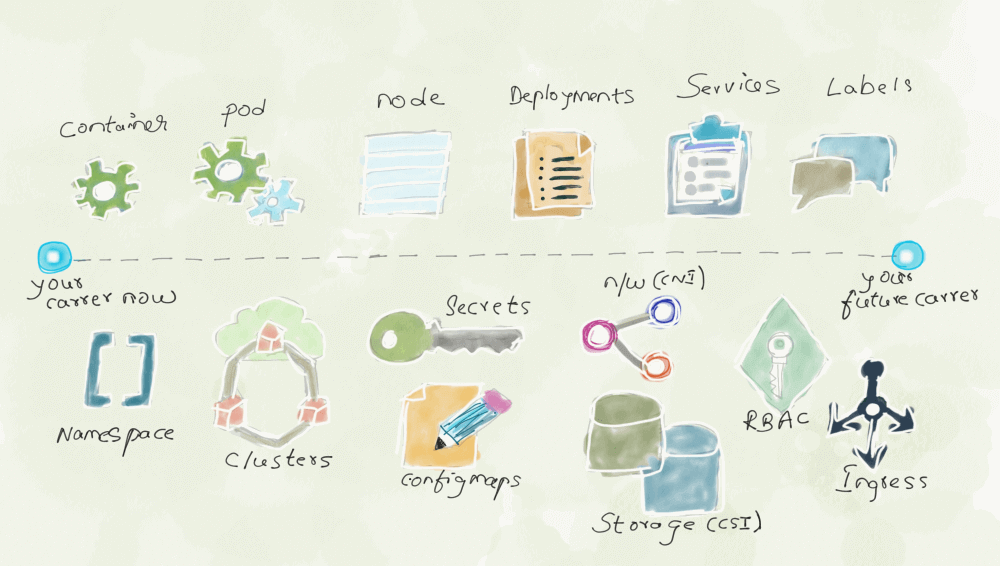 Container
pod
node
Deployments
Services
Labels
your
carrer now
your
future carrer
Namespace
Clusters
Secrets
configmaps
n/w (CNI)
Storage (CSI)
RBAC
Ingress